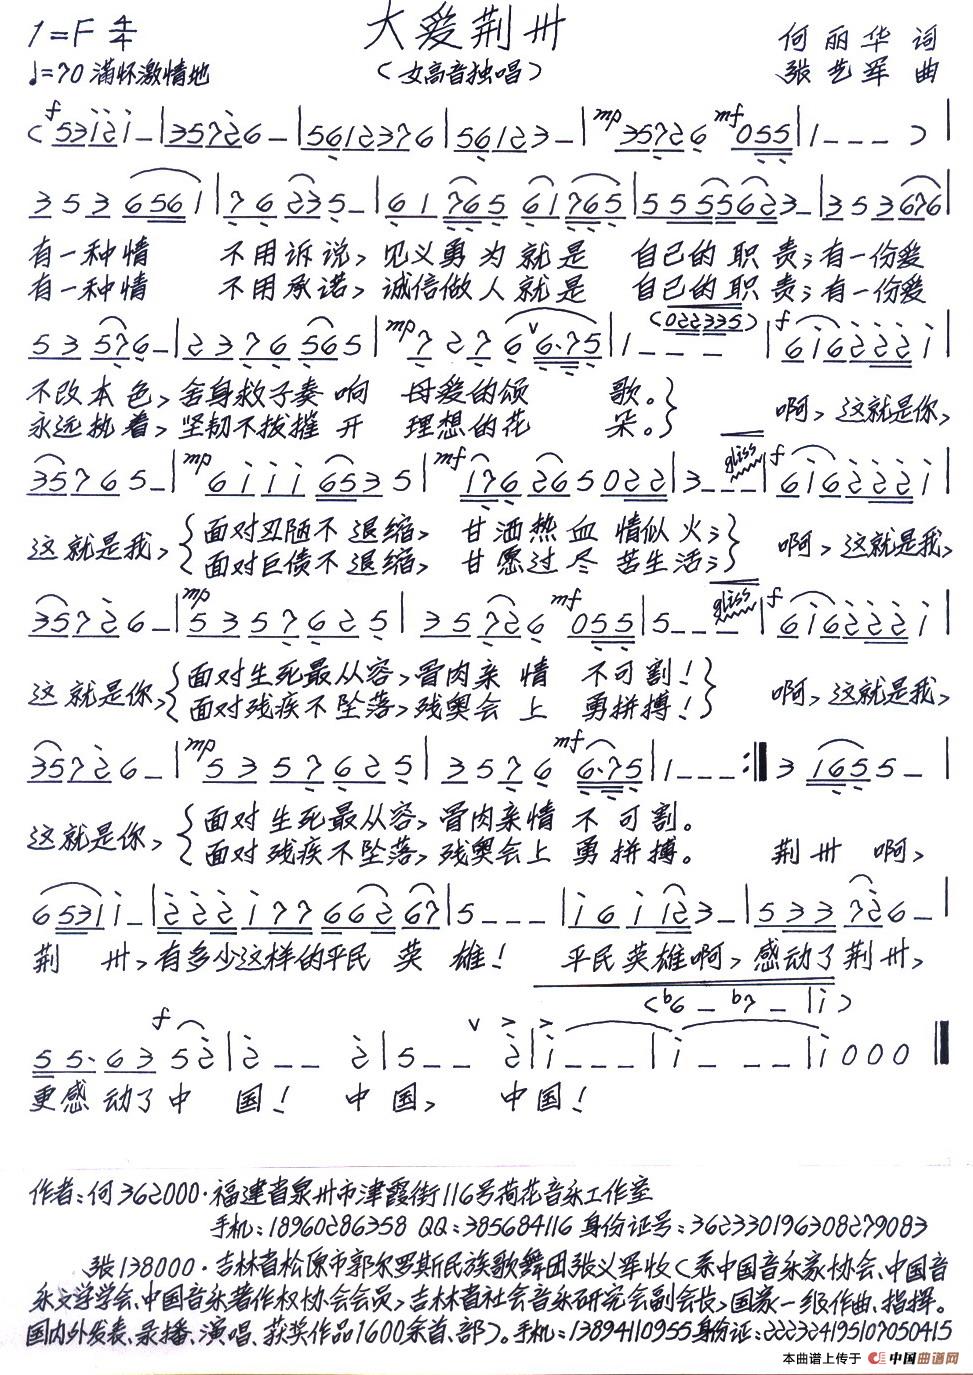 1=F 4/4
大爱荆卅
何丽华 词
♩=70 满怀激情地
(女高音独唱)
张艺军 曲
f mp mf
( 5 3 1 2 1 – | 3 5 7 2 6 – | 5 6 1 2 3 7 6 | 5 6 1 2 3 – | 3 5 7 2 6 0 5 5 | 1 – – – ) |
3 5 3 6 5 6 1 | 7 6 2 3 5 – | 6 1 7 6 5 6 1 7 6 5 | 5 5 5 5 6 2 3 – | 3 5 3 6 7 6 |
有一种情 不用诉说, 见义勇为就是 自己的职责;有一份爱
有一种情 不用承诺, 诚信做人就是 自己的职责;有一份爱
mp v (0 2 2 3 3 5) f
5 3 5 7 6 – | 2 3 7 6 5 6 5 | 7 2 7 6 6·7 5 | 1 – – – | 6 1 6 2 2 2 1 |
不改本色, 舍身救子奏响 母爱的颂 歌。
永远执着, 坚韧不拔摧开 理想的花 朵。
啊, 这就是你,
mp mf gliss f
3 5 7 6 5 – | 6 1 1 1 6 5 3 5 | 1 7 6 2 6 5 0 2 2 | 3 – – – | 6 1 6 2 2 2 1 |
这就是我, 面对丑陋不退缩, 甘洒热血情似火;
面对巨债不退缩, 甘愿过尽苦生活;
啊, 这就是我,
mp mf gliss f
3 5 7 2 6 – | 5 3 5 7 6 2 5 | 3 5 7 2 6 0 5 5 | 5 – – – | 6 1 6 2 2 2 1 |
这就是你, 面对生死最从容, 骨肉亲情 不可割!
面对残疾不坠落, 残奥会上 勇拼搏!
啊, 这就是我,
mp mf
3 5 7 2 6 – | 5 3 5 7 6 2 5 | 3 5 7 6 6·7 5 | 1 – – – :‖ 3 1 6 5 5 – |
这就是你, 面对生死最从容, 骨肉亲情不可割。
面对残疾不坠落, 残奥会上勇拼搏。
荆卅啊,
6 5 3 1 1 – | 2 2 2 1 7 7 6 6 2 6 7 | 5 – – – | 1 6 1 1 2 3 – | 5 3 3 7 2 6 – |
荆 卅, 有多少这样的平民英雄! 平民英雄啊, 感动了荆卅,
(♭6 – ♭7 – | 1)
f v > >
5 5· 6 3 5 2 | 2 – – 2 | 5 – – 2 | 1 – – – | 1 – – – | 1 0 0 0 ‖
更感动了中 国! 中国, 中国!
作者:何362000·福建省泉卅市津霞街116号荷花音乐工作室
手机:18960286358 QQ:385684116 身份证号:362330196308279083
张138000·吉林省松原市郭尔罗斯民族歌舞团张义军收(系中国音乐家协会、中国音
乐文学学会、中国音乐著作权协会会员,吉林省社会音乐研究会副会长,国家一级作曲、指挥。
国内外发表、录播、演唱、获奖作品1600余首、部)。手机:13894110955身份证:222324195107050415
本曲谱上传于 中国曲谱网